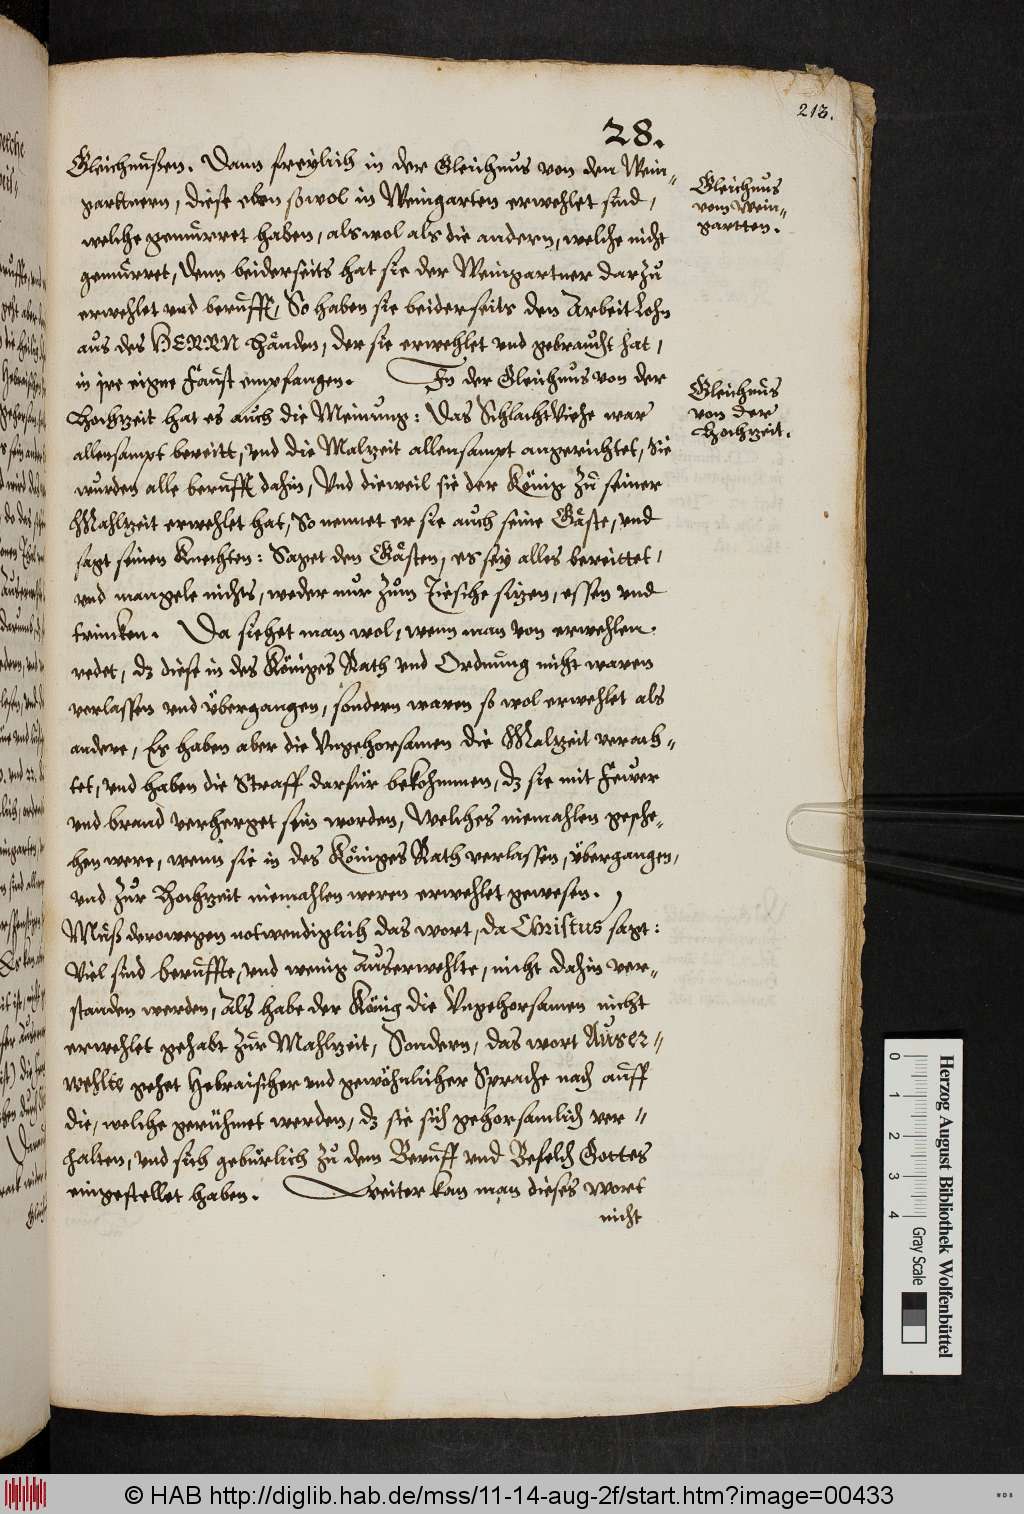 213.
28.
Gleichnüßen. Dann freÿlich in der Gleichnus von den Wein-
gartnern, diese eben sowol in Weingarten erwehlet sind,
welche gemürret haben, als wol als die andern, welche nicht
gemürret, Denn beiderseits hat sie der Weingartner darzu
erwehlet vnd berufft, So haben sie beiderseits den Arbeit Lohn
aus des HERRN händen, der sie erwehlet vnd gebraucht hat,
in ire eigne Faust empfangen. In der Gleichnus von der
Hochzeit hat es auch die Meinung: Das Schlacht Viehe war
allensampt bereitt, vnd die Malzeit allensampt angerichtet, Sie
wurden alle berufft dahin, Vnd dieweil sie der König zu seiner
Mahlzeit erwehlet hat, So nennet er sie auch seine Gäste, vnd
sagt seinen Knechten: Saget den Gästen, es seÿ alles bereittet,
vnd mangele nichts, weder nur zum Tiesche sizen, essen vnd
trincken. Da siehet man wol, wenn man von erwehlen
redet, dz diese in des Königes Rath vnd Ordnung nicht waren
verlassen vnd übergangen, sondern waren so wol erwehlet als
andere, Es haben aber die Vngehorsamen die Malzeit verach-
tet, vnd haben die Straff darfür bekohmmen, dz sie mit Fewer
vnd brand verherget sein worden, Welches niemahlen gesche-
hen were, wenn sie in des Königes Rath verlassen, übergangen,
vnd zur Hochzeit niemahlen weren erwehlet gewesen.
Muß derowegen notwendiglich das wort, da Christus sagt:
Viel sind beruffte, vnd wenig Auserwehlte, nicht dahin ver-
standen werden, Als habe der König die Vngehorsamen nicht
erwehlet gehabt zur Mahlzeit, Sondern, das wort Auser-
wehlte gehet Hebraischer vnd gewöhnlicher Sprache nach auff
die, welche gerühmet werden, dz sie sich gehorsamlich ver-
halten, vnd sich gebürlich zu dem Beruff vnd Befelch Gottes
eingestellet haben. Weiter kan man dieses wort
nicht
Gleichnus
vom Wein-
gartten.
Gleichnus
von der
Hochzeit.
Herzog August Bibliothek Wolfenbüttel
0 1 2 3 4
Gray Scale
© HAB http://diglib.hab.de/mss/11-14-aug-2f/start.htm?image=00433